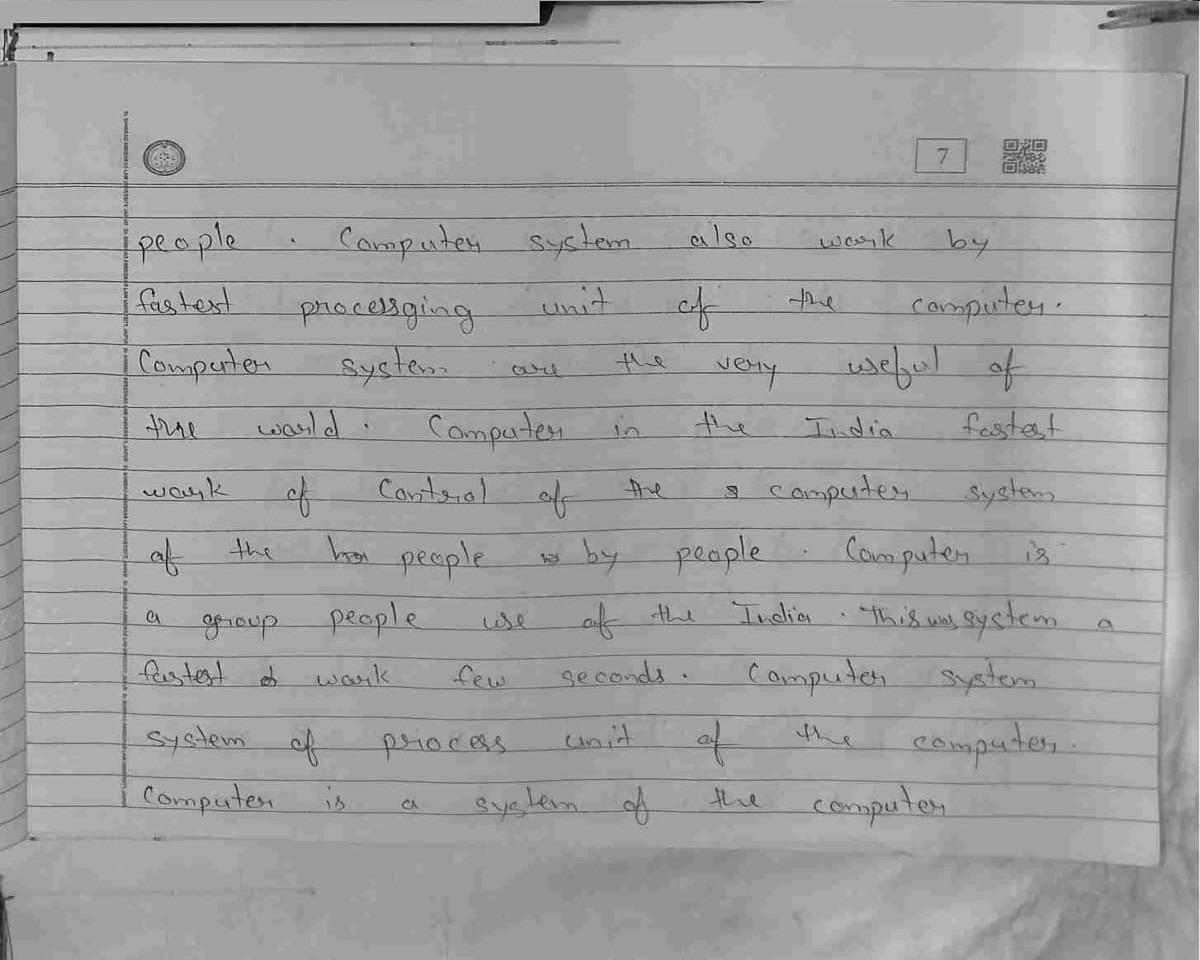 7
people . Computer system also work by
fastest processging unit of the computer.
Computer system are the very useful of
the world . Computer in the India fastest
work of Control of the computer system
of the people by people . Computer is
a group people use of the India . This was system a
fastest work few seconds. Computer system
system of process unit of the computer.
Computer is a system of the computer